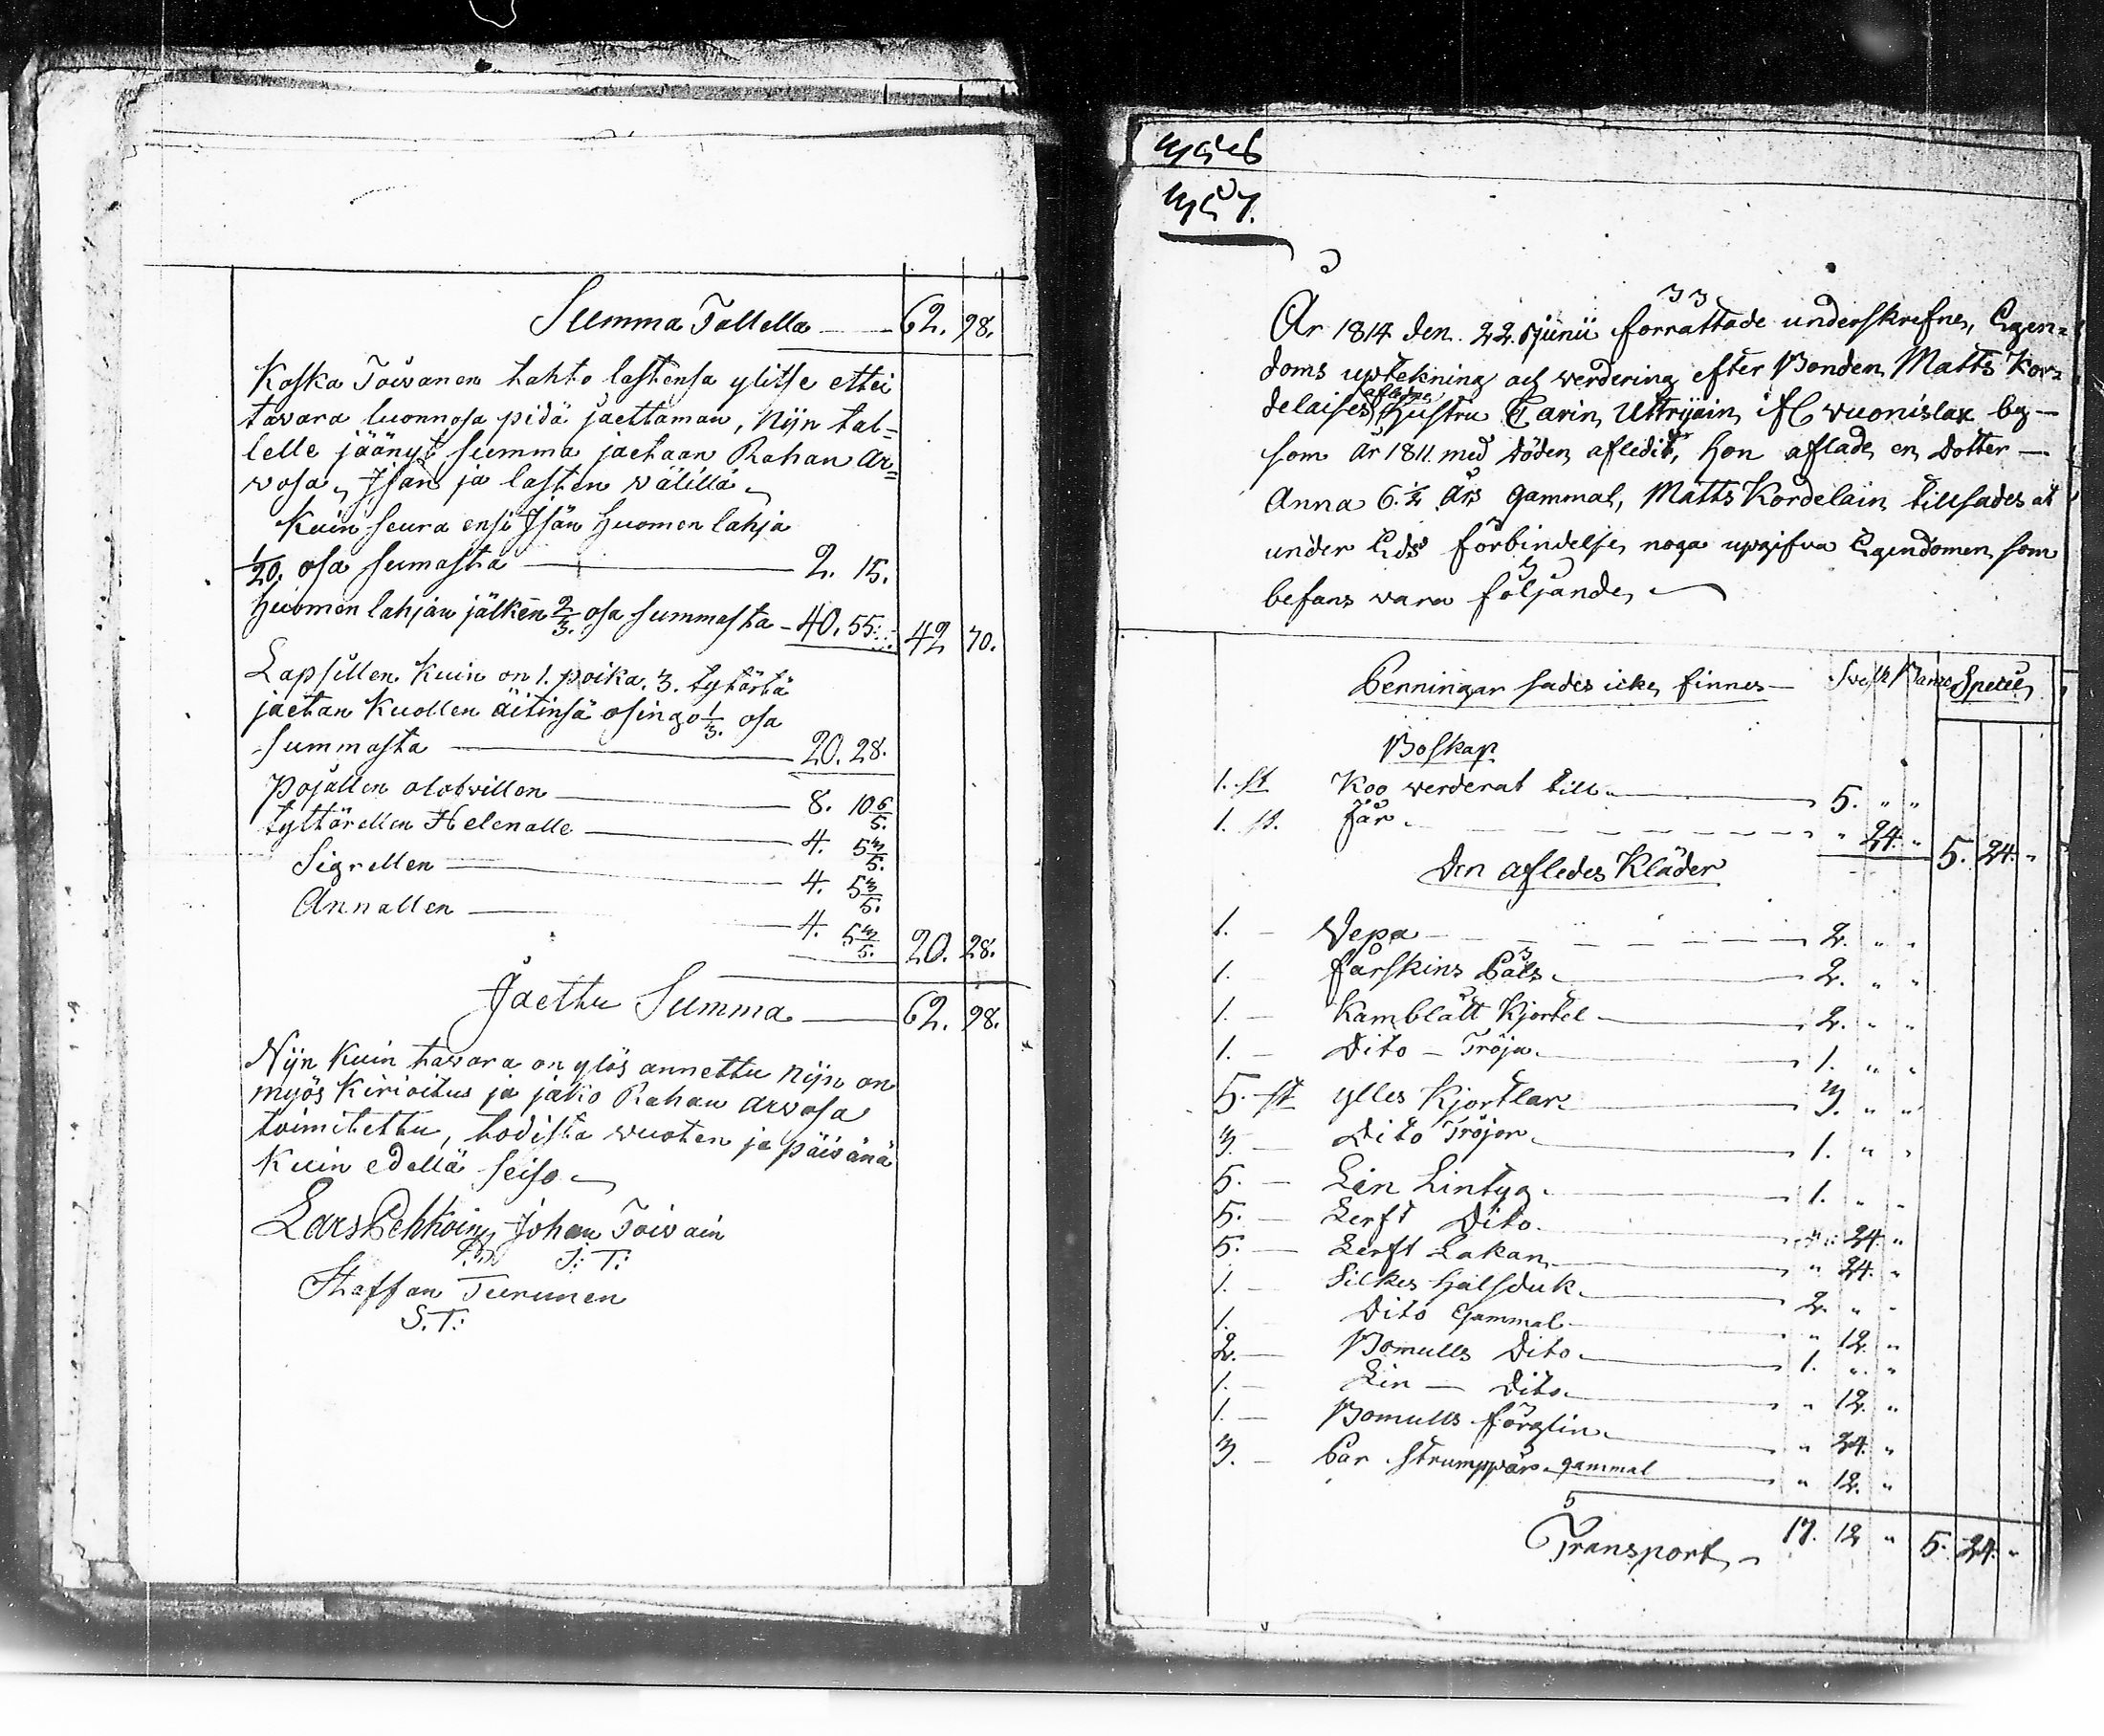 Summa Tallella — 62. 98.
Koska Toiwanen tahto lastensa ylitse ettei
tawara luonnosa pidä jaettaman, Nijn tal=
lelle jäänyt summa jaetaan Rahan Ar=
wosa, Isän ja lasten wälillä
Kuin seura ensi Isän Huomen lahja
1/20. osa sumasta — 2. 15.
Huomen lahjan jälken 2/3. osa summasta — 40. 55. 42 70.
Lapsillen Kuin on 1. poika. 3. tytärtä
jaetan Kuollen äitinsä osingo 1/3. osa
summasta — 20. 28.
Pojallen olotwillen — 8. 10 6/5.
tyttärellen Helenalle — 4. 5 3/5.
Sigrellen — 4. 5 3/5.
Annallen — 4. 5 3/5. 20. 28.
Jaettu Summa — 62. 98.
Nijn Kuin tawara on ylös annettu nijn on
myös Kirioitus ja jako Rahan arwosa
toimitettu, todista wuoten ja päiwänä
Kuin edellä seiso
Lars Pehkoin Johan Toiwain
J: T:
Staffan Turunen
S. T:
År 1814 den. 22. Junii förrättade underskrefne, Egen=
doms uptekning och werdering efter Bonden Matts Kor=
delaises aflidne Hustru Carin Uttrijain, if Wuonislax by —
som år 1811. med döden afledit, hon aflade en Dotter —
Anna 6. 1/2 års gammal, Matts Kordelain tillsades at
under Eds förbindelse noga upgifva Egendomen som
befans wara följande,
Penningar sades icke finnes — Speciè
Boskap
1. st Koo werderat till — 5. " "
1. st. får — " 24. " 5. 24. "
Den afledes Kläder
1. — Vepa — 2. " "
1. — fårskins Päls — 2. " "
1. — Kamblått Kjortel — 2. " "
1. — Dito — Tröja — 1. " "
5. st ylles Kjortlar — 3. " "
3. — Dito Tröjor — 1. " "
5. — Lin Lintyg — 1. " "
5. — Lerft Dito — " 24. "
5. — Lerft Lakan — " 24. "
1. — Silkes Halsduk — 2. " "
1. Dito Gammal — " 12. "
2. — Bomulls Dito — 1. " "
1. — Lin — Dito — " 12. "
1. — Bomulls förglin — " 24. "
3. — Par Strumppar gammal — " 12. "
Transport 17. 12 " 5. 24. "